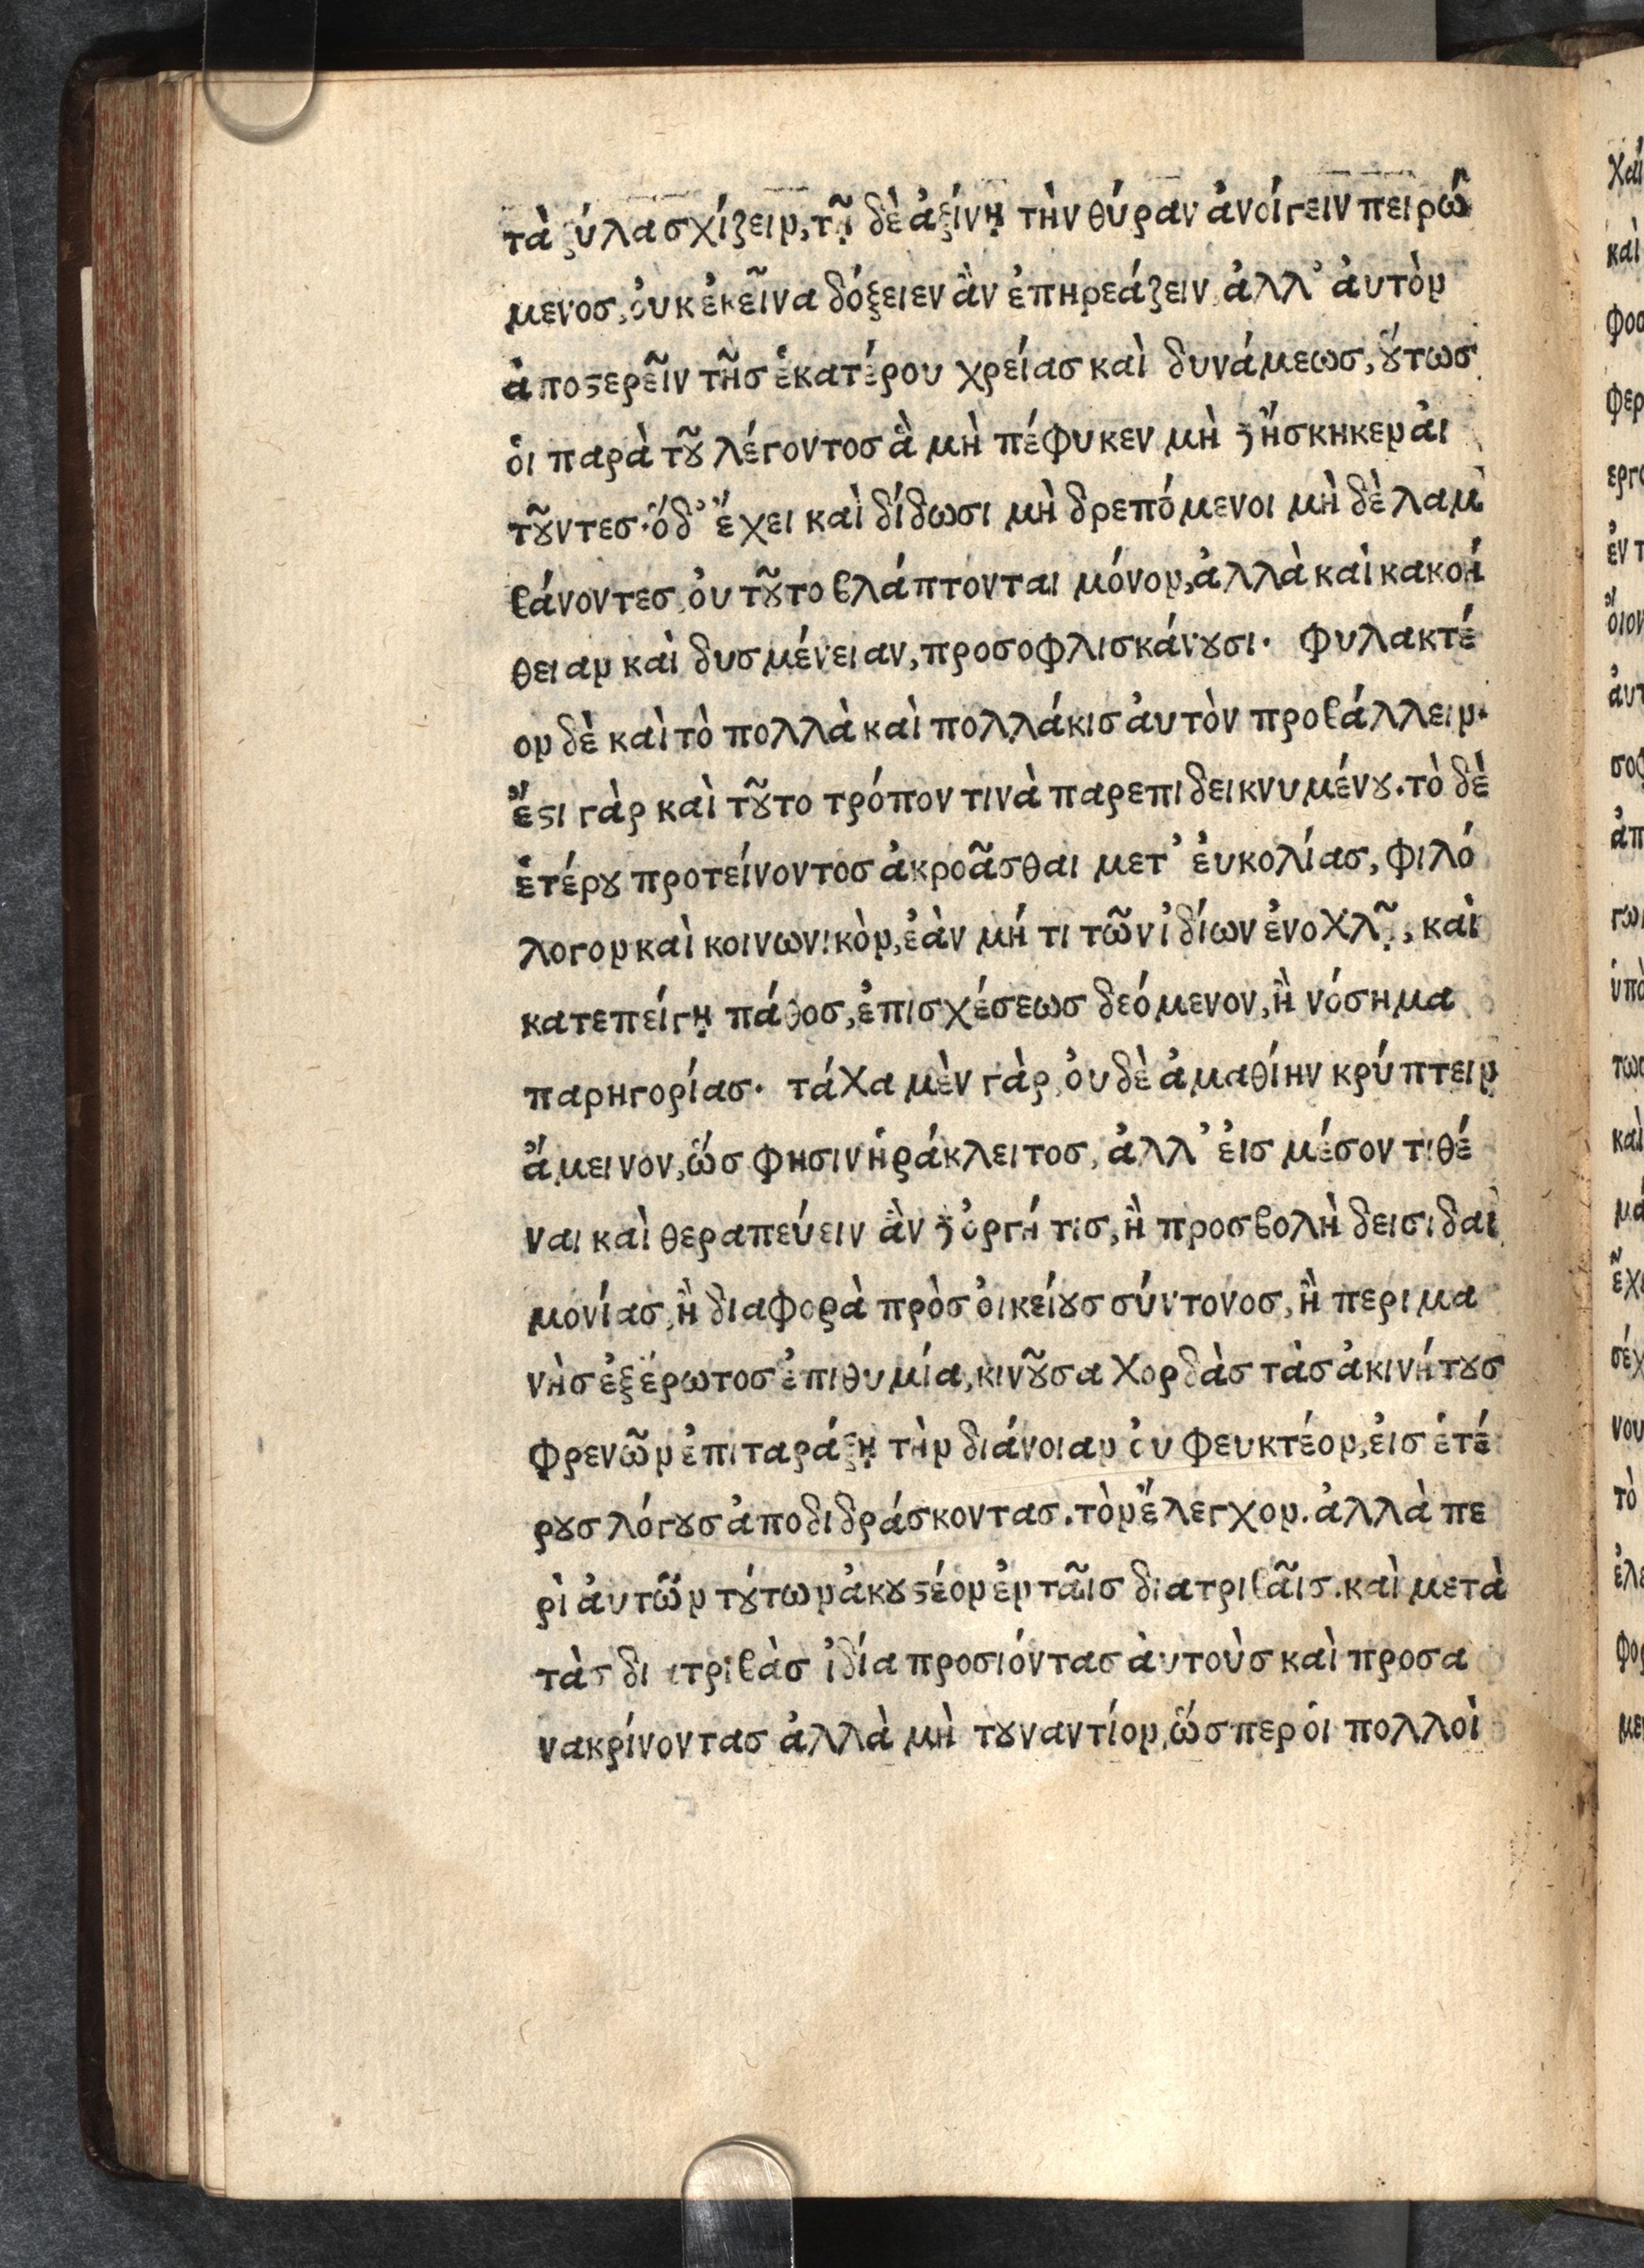 τὰ ξύλα σχίζειν, τῇ δὲ ἀξίνῃ τὴν θύραν ἀνοίγειν πειρώ
μενοσ, ὀυκ ἐκεῖνα δόξειεν ἂν ἐπηρεάζειν ἀλλ' ἀυτὸν
ἀποϛερεῖν τῆσ ἑκατέρου χρείασ καὶ δυνάμεωσ, ȣ̔́τωσ
ὁι παρὰ τȣ͂ λέγοντοσ ἃ μὴ πέφυκεν μὴ ϗ ἤσκηκεν ἀι
τȣ͂ντεσ· ὅ δ' ἔχει καὶ δίδωσι μὴ δρεπόμενοι μὴ δὲ λαμ
βάνοντεσ, ὀυ τȣ͂το βλάπτονται μόνον, ἀλλὰ καὶ κακοή
θειαν καὶ δυσμένειαν, προσοφλισκάνȣσι· Φυλακτέ
ον δὲ καὶ τὸ πολλὰ καὶ πολλάκισ ἀυτὸν προβάλλειν·
ἔϛι γὰρ καὶ τȣ͂το τρόπον τινὰ παρεπιδεικνυμένȣ. τὸ δὲ
ἑτέρȣ προτείνοντοσ ἀκροᾶσθαι μετ' ἐυκολίασ, φιλό
λογον καὶ κοινωνικὸν, ἐὰν μή τι τῶν ἰδίων ἐνοχλῇ, καὶ
κατεπείγῃ πάθοσ, ἐπισχέσεωσ δεόμενον, ἢ νόσημα
παρηγορίασ· τάχα μὲν γὰρ, ὀυδὲ ἀμαθίην κρύπτειν
ἄμεινον, ὥσ φησιν ἡράκλειτοσ, ἀλλ' ἐισ μέσον τιθέ
ναι καὶ θεραπεύειν ἂν ϗ ὀργή τισ, ἢ προσβολὴ δεισιδαι
μονίασ, ἢ διαφορὰ πρὸσ ὀικείȣσ σύντονοσ, ἢ περιμα
νὴσ ἐξ έρωτοσ ἐπιθυμία, κινȣ͂σα χορδὰσ τὰσ ἀκινήτȣσ
φρενῶν ἐπιταράξῃ τὴν διάνοιαν ὀυ φευκτέον, ἐισ ἑτέ
ρȣσ λόγȣσ ἀποδιδράσκοντασ. τὸν ἔλεγχον. ἀλλὰ πε
ρὶ ἀυτῶν τȣ́των ἀκȣϛέον ἐν ταῖσ διατριβαῖσ. καὶ μετὰ
τὰσ διατριβὰσ ἰδία προσιόντασ ἀυτοὺσ καὶ προσα
νακρίνοντασ ἀλλὰ μὴ τȣναντίον, ὥσπερ ὁι πολλοὶ